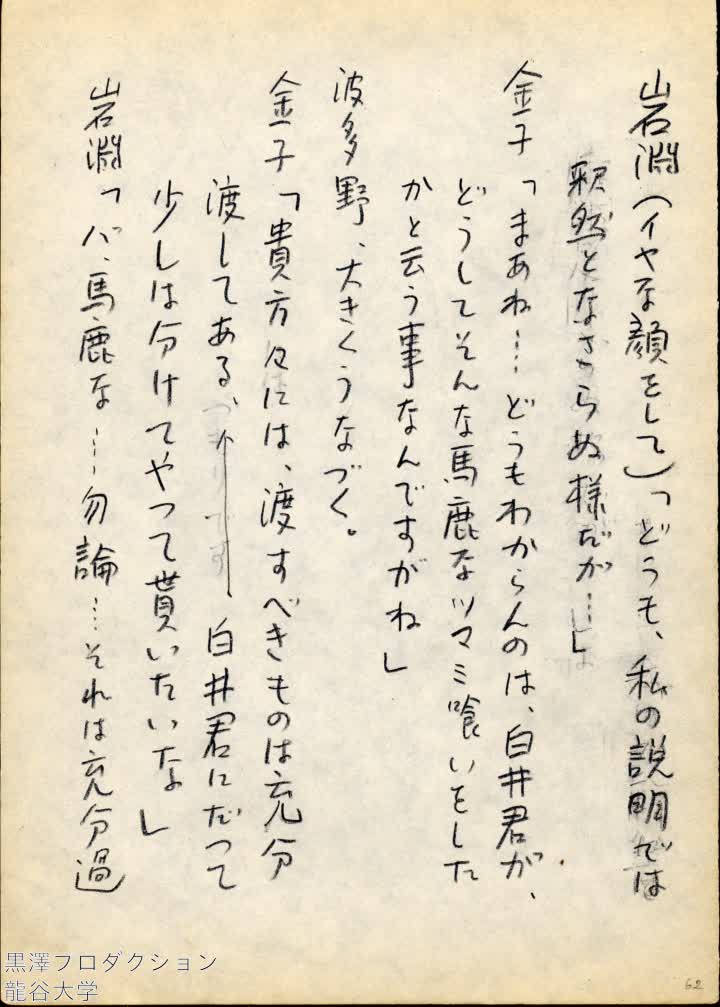 岩淵(イヤな顔をして)「どうも、私の説明では
釈然となさらぬ様だが…」
金子「まあね…どうもわからんのは、白井君が、
どうしてそんな馬鹿なツマミ喰いをした
かと云う事なんですがね」
波多野、大きくうなづく。
金子「貴方々には、渡すべきものは充分
渡してある、白井君にだつて
少しは分けてやつて貰いたいな」
岩淵「バ、馬鹿な…勿論…それは充分過
黒澤プロダクション
龍谷大学
62